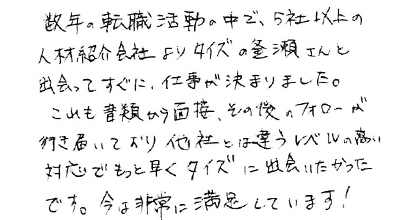 数年の転職活動の中で、5社以上の
人材紹介会社よりタイズの釜瀬さんと
出会ってすぐに、仕事が決まりました。
これも書類から面接、その後のフォローが
行き届いており他社とは違うレベルの高い
対応でもっと早くタイズに出会いたかった
です。今は非常に満足しています！